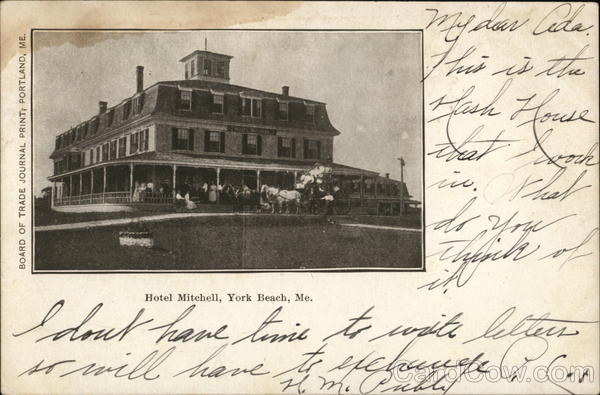 BOARD OF TRADE JOURNAL PRINT, PORTLAND, ME.
My dear Ada.
This is the
Hash House
that I work
in. What
do you
think of
it.
Hotel Mitchell, York Beach, Me.
I don't have time to write letters
so will have to exchange P. C-s
H. M.
CardCow.com